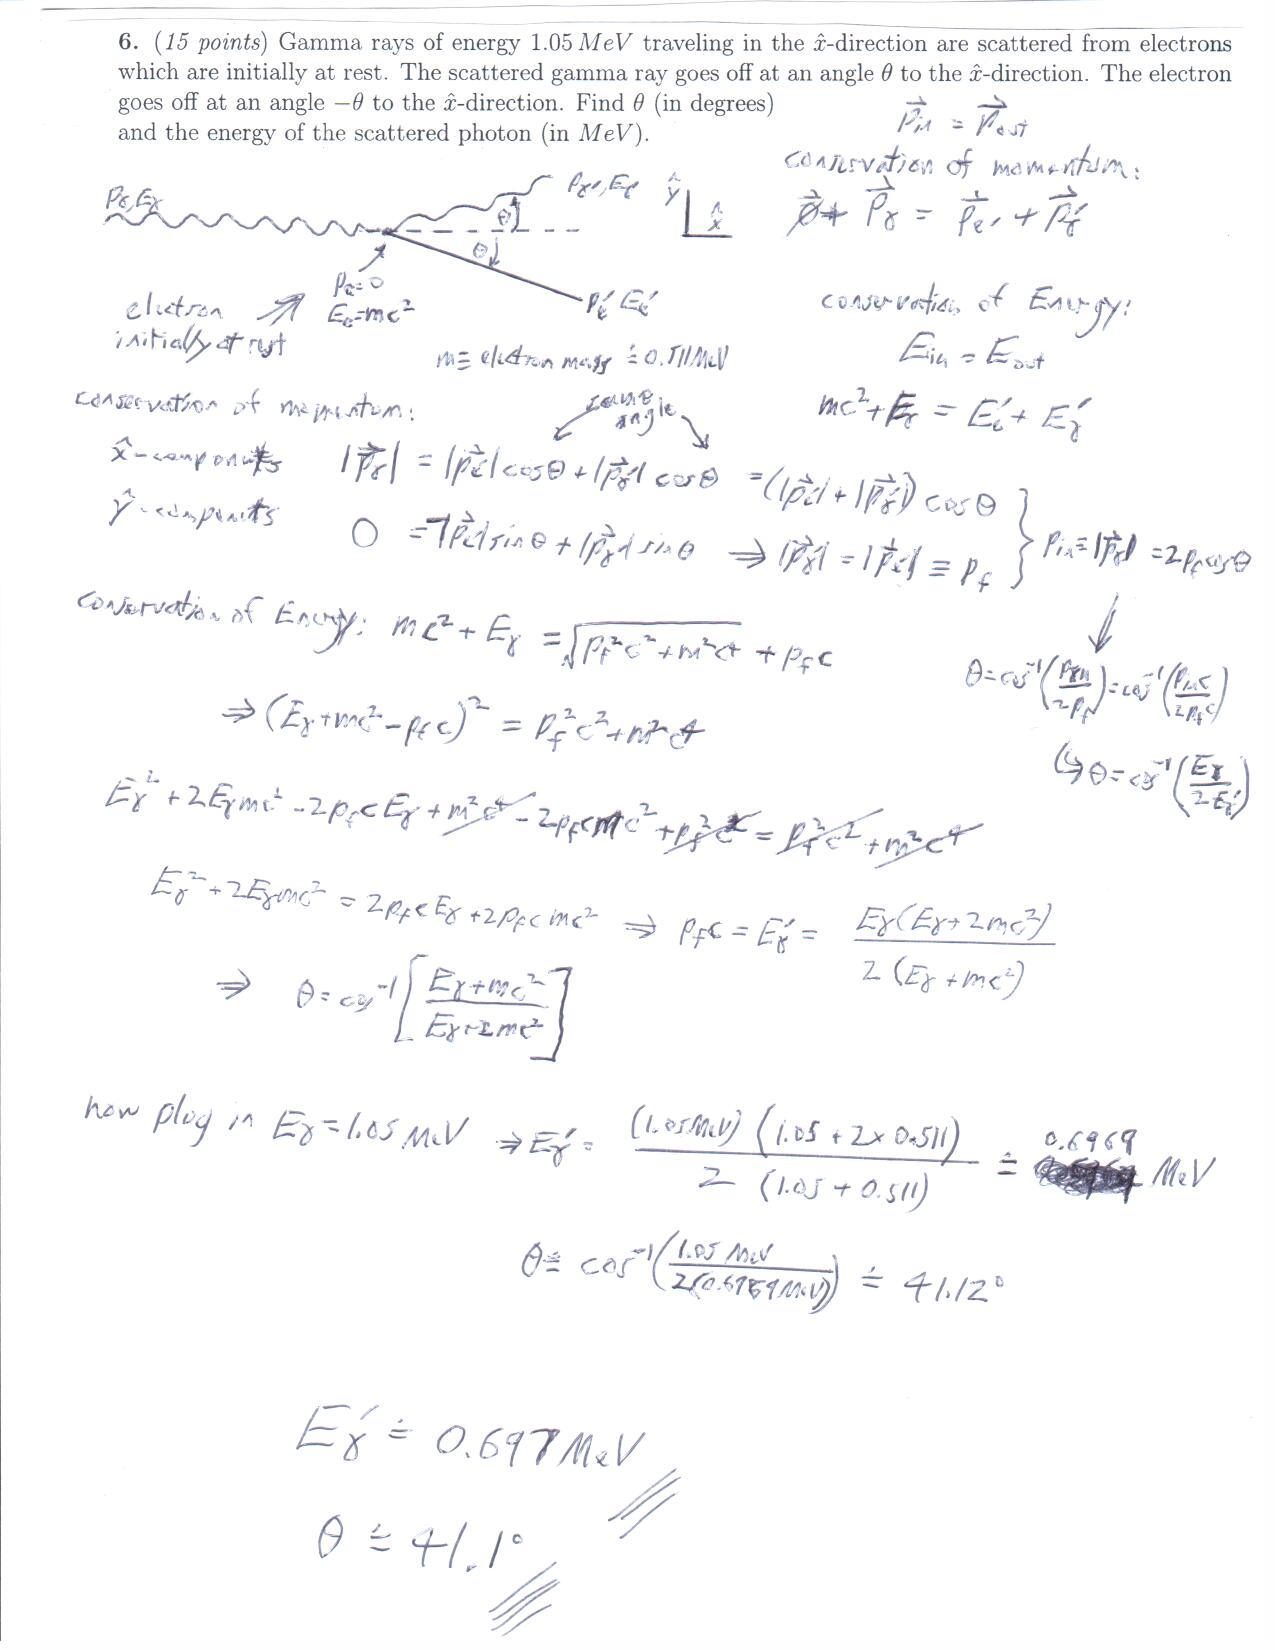 6. (15 points) Gamma rays of energy 1.05 MeV traveling in the x̂-direction are scattered from electrons
which are initially at rest. The scattered gamma ray goes off at an angle θ to the x̂-direction. The electron
goes off at an angle −θ to the x̂-direction. Find θ (in degrees)
and the energy of the scattered photon (in MeV).
p⃗in = p⃗out
conservation of momentum:
0⃗ + p⃗γ = p⃗e' + p⃗γ'
Pγ, Eγ
Pγ', Eγ'
θ
θ
ŷ
x̂
Pe=0
Ee=mc²
Pe' Ee'
electron
initially at rest
m ≡ electron mass ≐ 0.511 MeV
conservation of Energy:
Ein = Eout
mc² + Eγ = Ee' + Eγ'
conservation of momentum:
same
angle
x̂-components |p⃗γ| = |p⃗e'| cosθ + |p⃗γ'| cosθ = (|p⃗e'| + |p⃗γ'|) cosθ
ŷ-components 0 = -|p⃗e'| sinθ + |p⃗γ'| sinθ ⇒ |p⃗γ'| = |p⃗e'| ≡ Pf } Pin = |p⃗γ| = 2Pf cosθ
conservation of Energy: mc² + Eγ = √(Pf²c² + m²c⁴) + Pfc
θ = cos⁻¹(Pin/2Pf) = cos⁻¹(Pinc/2Pfc)
⇒ (Eγ + mc² - Pfc)² = Pf²c² + m²c⁴
↳ θ = cos⁻¹(Eγ/2Eγ')
Eγ² + 2Eγmc² - 2PfcEγ + m²c⁴ - 2Pfcmc² + Pf²c² = Pf²c² + m²c⁴
Eγ² + 2Eγmc² = 2PfcEγ + 2Pfcmc² ⇒ Pfc = Eγ' = Eγ(Eγ + 2mc²) / 2(Eγ + mc²)
⇒ θ = cos⁻¹[(Eγ + mc²)/(Eγ + 2mc²)]
now plug in Eγ = 1.05 MeV ⇒ Eγ' = (1.05 MeV)(1.05 + 2 × 0.511) / 2(1.05 + 0.511) ≐ 0.6969 MeV
θ ≐ cos⁻¹(1.05 MeV / 2(0.6969 MeV)) ≐ 41.12°
Eγ' ≐ 0.697 MeV
θ ≐ 41.1°